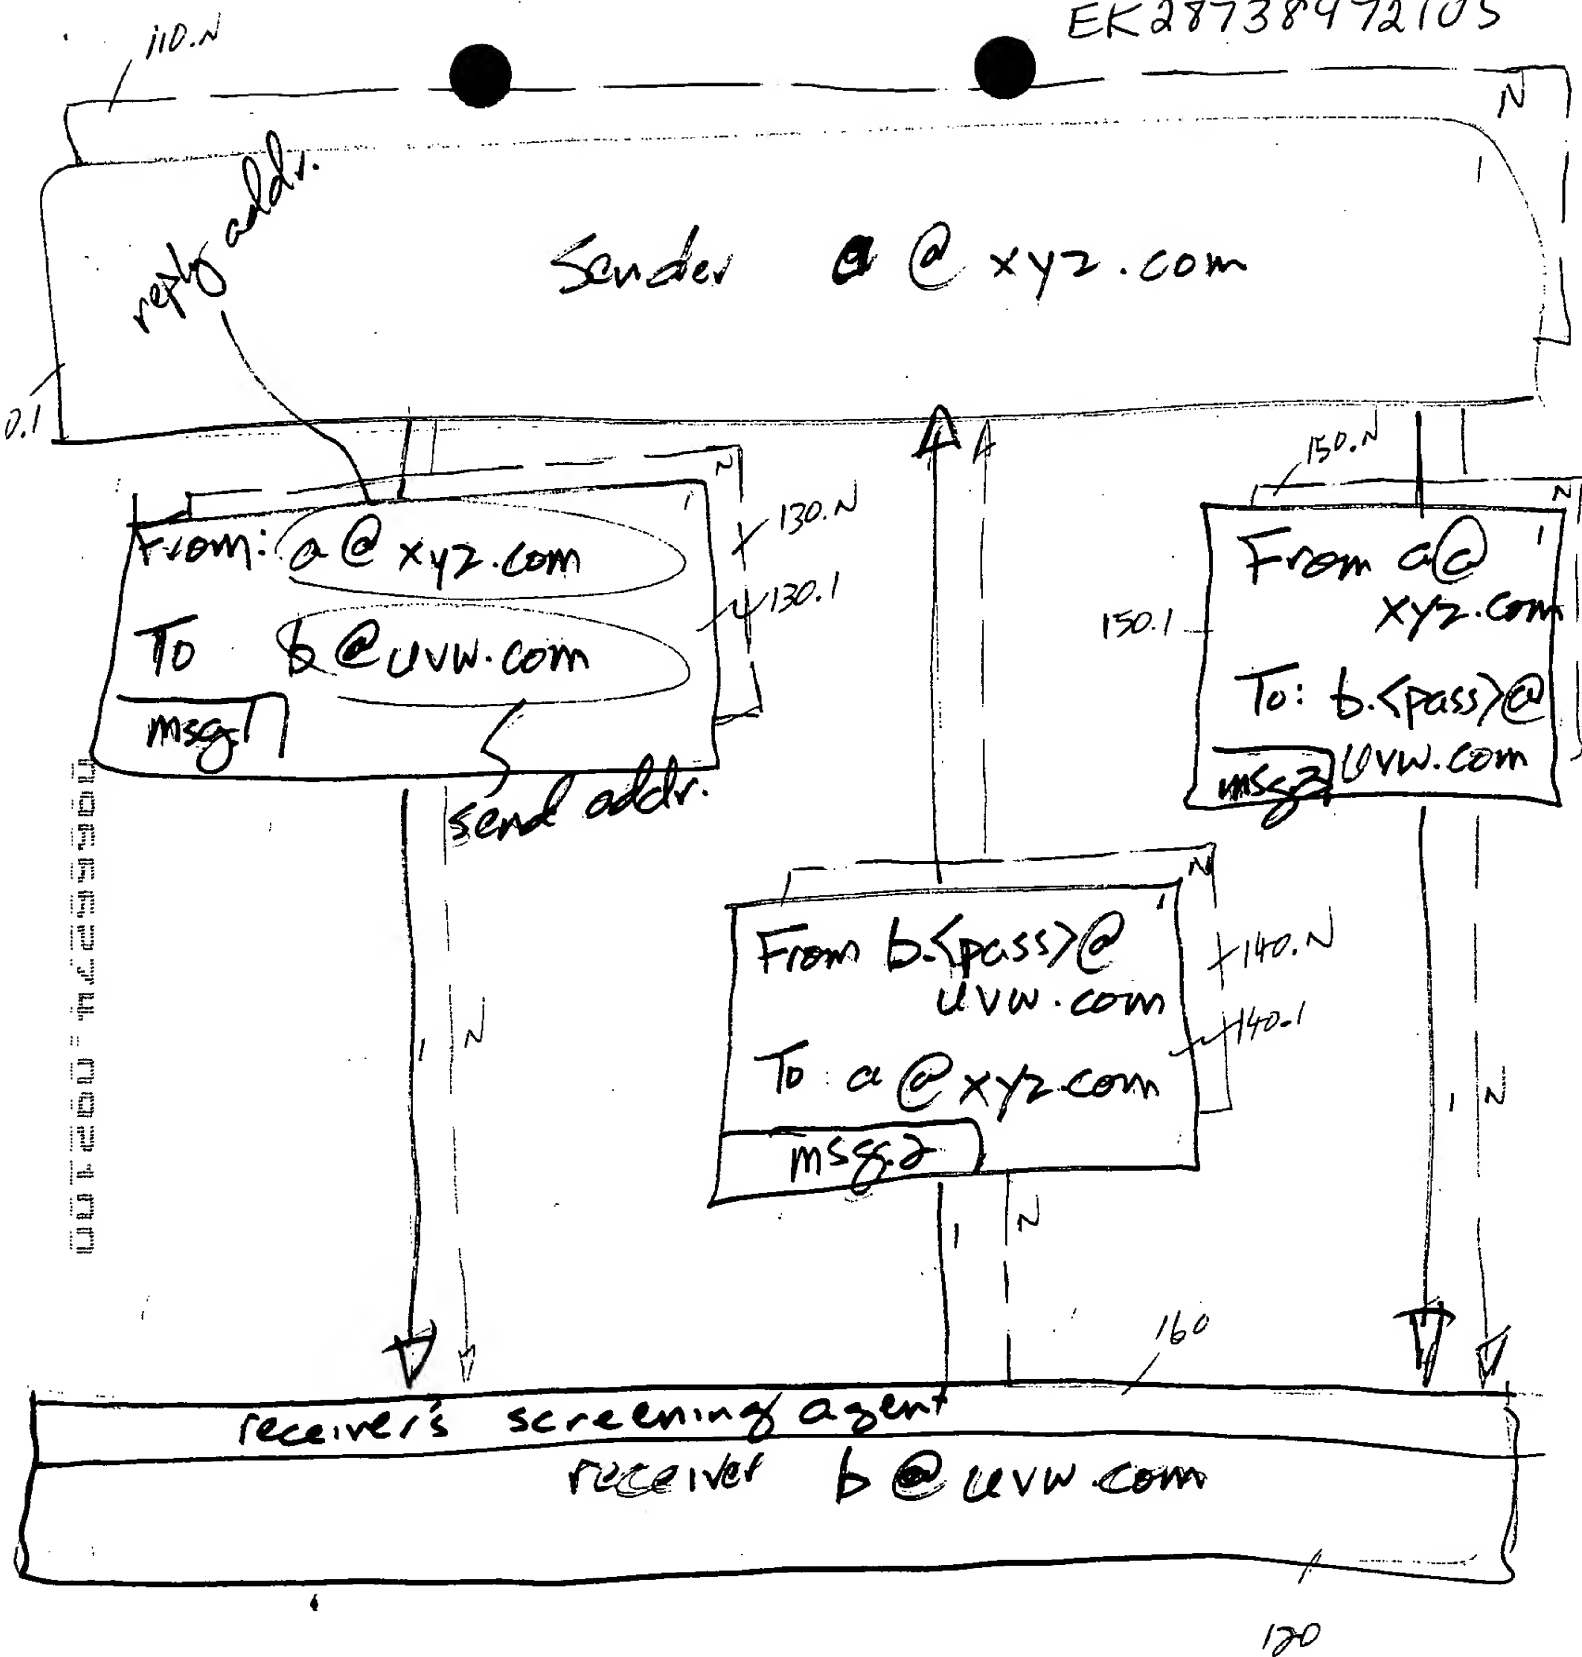 EK287389721US
110.N
N
reply addr.
Sender a @ xyz.com
0.1
N
1
From: a @ xyz.com
To b @ uvw.com
msg.1
130.N
130.1
send addr.
150.N
N
1
From a@
xyz.com
To: b.<pass>@
uvw.com
msg.2
150.1
N
1
From b.<pass>@
uvw.com
To a @ xyz.com
msg.2
140.N
140.1
1
N
1
N
1
N
160
receiver's screening agent
receiver b @ uvw.com
120